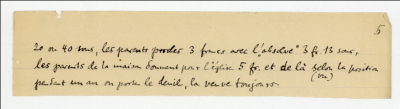 5
20 ou 40 sous, les parents porder 3 francs avec l'absolve° 3 fr 15 sous,
les parents de la maison donnent pour l'église 5 fr. et de là selon la position
(ou)
pendant un an on porte le deuil, la veuve toujours.